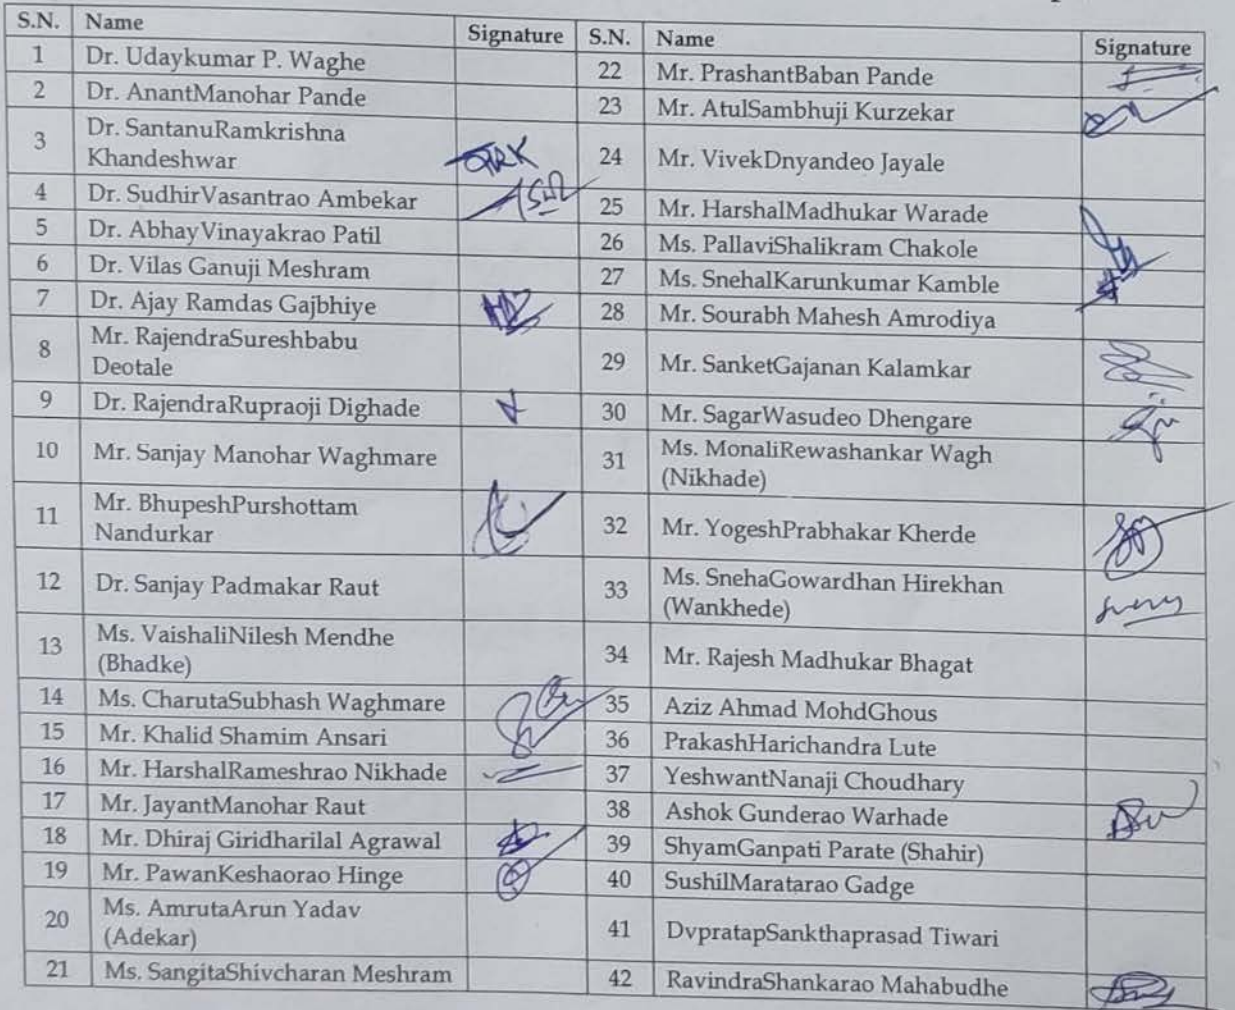 S.N. Name Signature S.N. Name Signature
1 Dr. Udaykumar P. Waghe 22 Mr. PrashantBaban Pande
2 Dr. AnantManohar Pande 23 Mr. AtulSambhuji Kurzekar
3 Dr. SantanuRamkrishna
Khandeshwar 24 Mr. VivekDnyandeo Jayale
4 Dr. SudhirVasantrao Ambekar 25 Mr. HarshalMadhukar Warade
5 Dr. AbhayVinayakrao Patil 26 Ms. PallaviShalikram Chakole
6 Dr. Vilas Ganuji Meshram 27 Ms. SnehalKarunkumar Kamble
7 Dr. Ajay Ramdas Gajbhiye 28 Mr. Sourabh Mahesh Amrodiya
8 Mr. RajendraSureshbabu
Deotale 29 Mr. SanketGajanan Kalamkar
9 Dr. RajendraRupraoji Dighade 30 Mr. SagarWasudeo Dhengare
10 Mr. Sanjay Manohar Waghmare 31 Ms. MonaliRewashankar Wagh
(Nikhade)
11 Mr. BhupeshPurshottam
Nandurkar 32 Mr. YogeshPrabhakar Kherde
12 Dr. Sanjay Padmakar Raut 33 Ms. SnehaGowardhan Hirekhan
(Wankhede)
13 Ms. VaishaliNilesh Mendhe
(Bhadke) 34 Mr. Rajesh Madhukar Bhagat
14 Ms. CharutaSubhash Waghmare 35 Aziz Ahmad MohdGhous
15 Mr. Khalid Shamim Ansari 36 PrakashHarichandra Lute
16 Mr. HarshalRameshrao Nikhade 37 YeshwantNanaji Choudhary
17 Mr. JayantManohar Raut 38 Ashok Gunderao Warhade
18 Mr. Dhiraj Giridharilal Agrawal 39 ShyamGanpati Parate (Shahir)
19 Mr. PawanKeshaorao Hinge 40 SushilMaratarao Gadge
20 Ms. AmrutaArun Yadav
(Adekar) 41 DvpratapSankthaprasad Tiwari
21 Ms. SangitaShivcharan Meshram 42 RavindraShankarao Mahabudhe